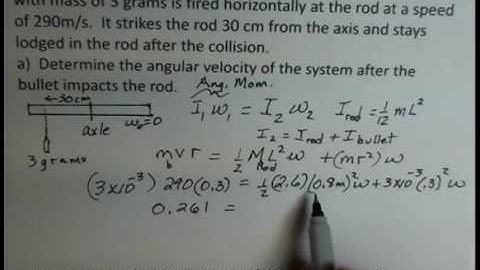 with mass of 3 grams is fired horizontally at the rod at a speed
of 290m/s. It strikes the rod 30 cm from the axis and stays
lodged in the rod after the collision.
a) Determine the angular velocity of the system after the
bullet impacts the rod.
Ang. Mom.
←30cm
I₁ω₁ = I₂ω₂
I rod = 1/12 mL²
axle
ω₀=0
I₂ = I rod + I bullet
3 grams
mvr = 1/2 ML²ω + (mr²)ω
Rod
(3x10⁻³) 290(0.3) = 1/2(2.6)(0.8m)²ω + 3x10⁻³(.3)²ω
0.261 =